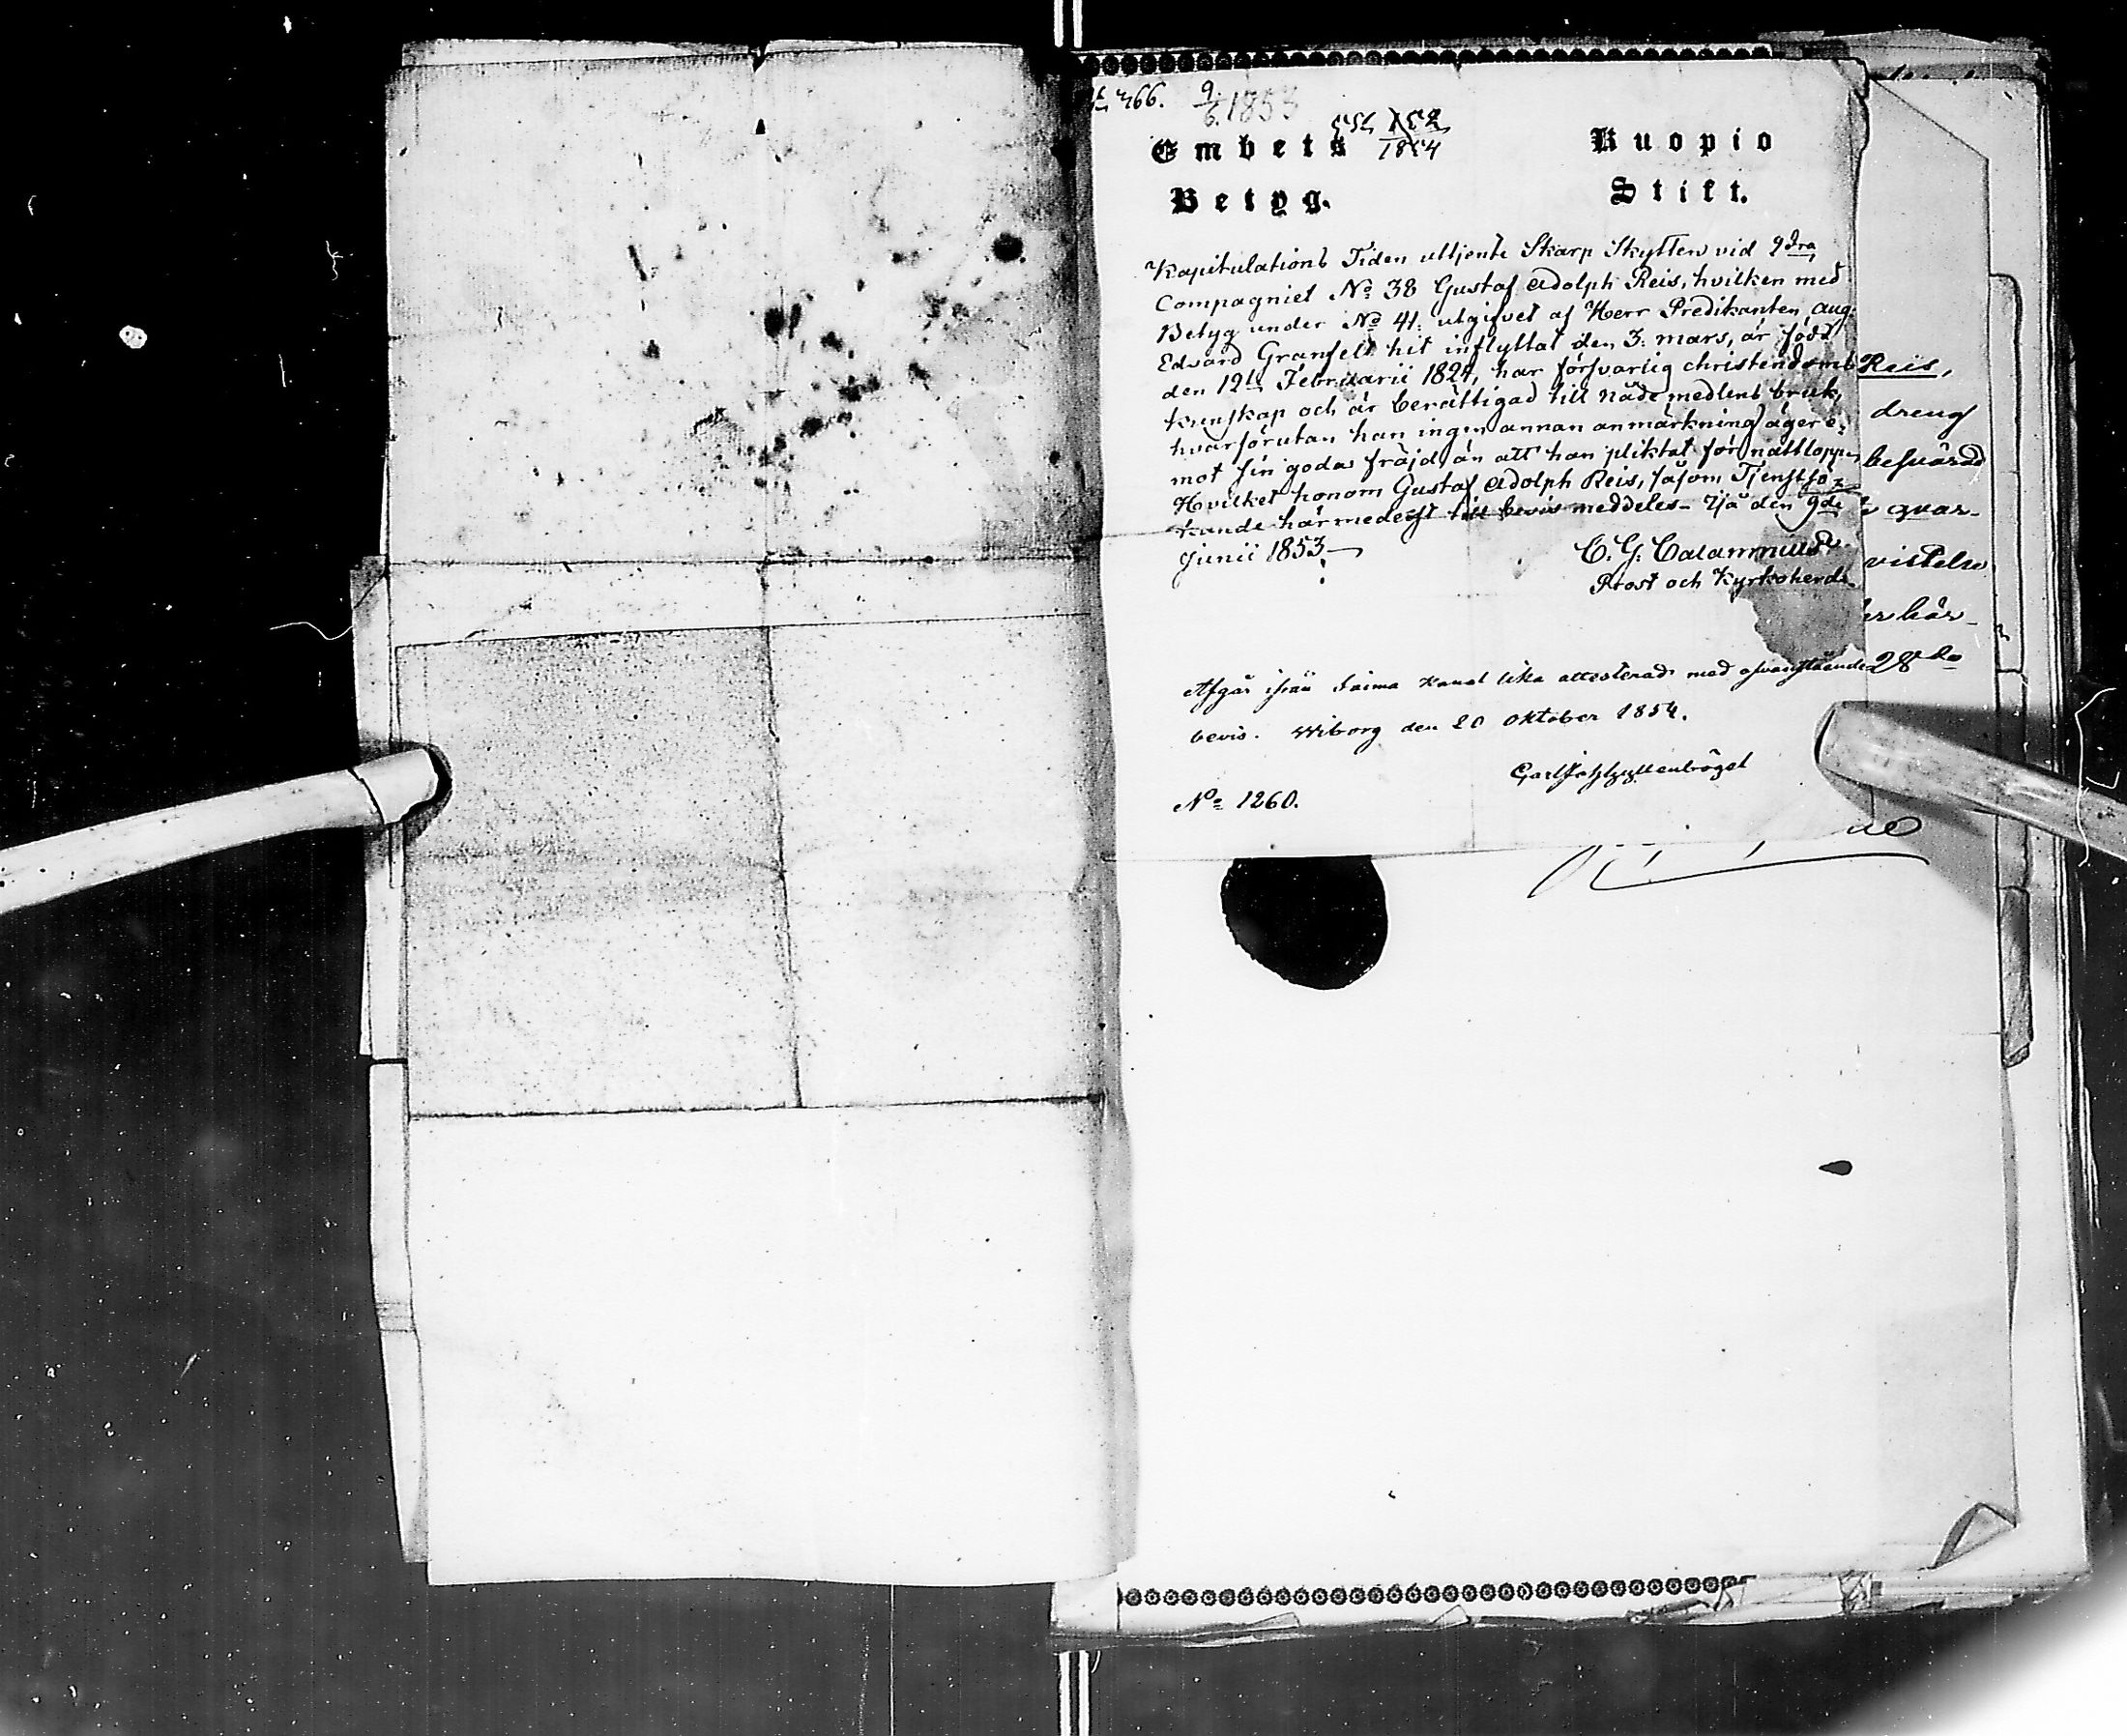 466. 9/6. 1853
Embets Kuopio
1854
Betyg. Stift.
Kapitulations Tiden uttjente Skarp Skytten vid 2dra
Compagniet No 38 Gustaf Adolph Reis, hvilken med
Betyg under No 41: utgifvet af Herr Predikanten Aug:
Edvard Granfelt hit inflyttat den 3: mars, är född
den 12te Februarii 1824, har försvarlig christendoms
kunskap och är berättigad till nåde medlens bruk,
hvarförutan han ingen annan anmärkning äger e-
mot sin goda fräjd, än att han pliktat för nattlopp,
Hvilket honom Gustaf Adolph Reis, såsom Tjenstsö-
kande härmedelst till bevis meddeles - Ijå den 9de
Junii 1853
C. G. Calamnius
Prost och Kyrkoherde
Afgår ifrån Saima Kanal lika attesterad med ofvanstående
bevis. Wiborg den 20 Oktober 1854.
No 1260.
Reis,
dreng
besvärad
qvar-
vistelse
här-
28de